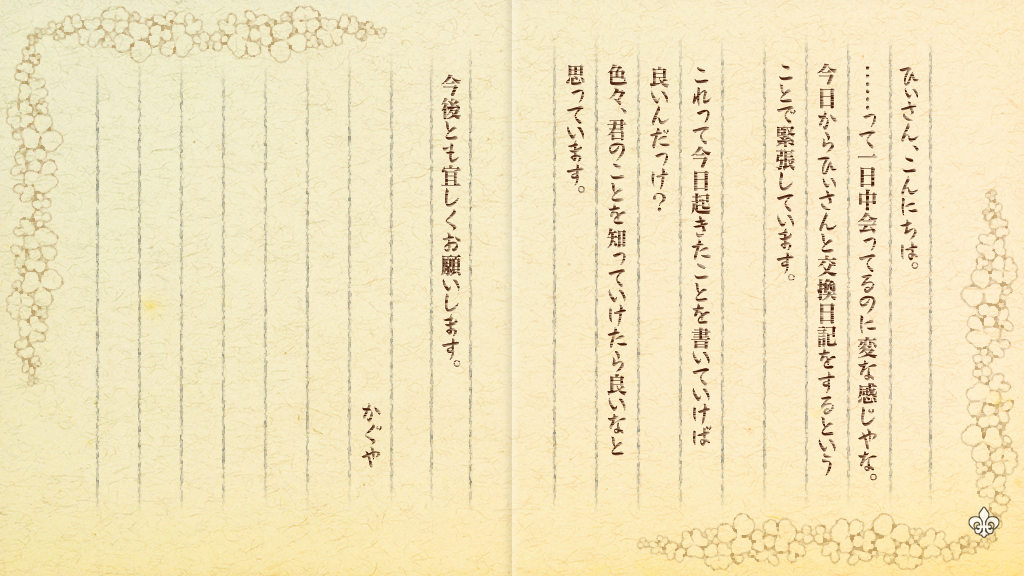 ひぃさん、こんにちは。
……って一日中会ってるのに変な感じやな。
今日からひぃさんと交換日記をするという
ことで緊張しています。
これって今日起きたことを書いていけば
良いんだっけ？
色々、君のことを知っていけたら良いなと
思っています。
今後とも宜しくお願いします。
かぐや